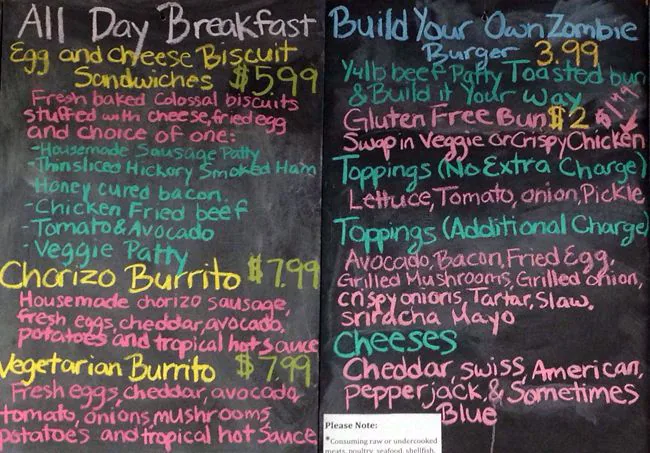 All Day Breakfast
Egg and cheese Biscuit
Sandwiches $5.99
Fresh baked Colossal biscuits
stuffed with cheese, fried egg
and choice of one:
- Housemade Sausage Patty
- Thinsliced Hickory Smoked Ham
- Honey cured bacon
- Chicken Fried beef
- Tomato & Avocado
- Veggie Patty
Chorizo Burrito $7.99
Housemade chorizo sausage,
fresh eggs, cheddar, avocado,
potatoes and tropical hot sauce
Vegetarian Burrito $7.99
Fresh eggs, cheddar, avocado,
tomato, onions, mushrooms,
potatoes and tropical hot sauce
Build Your Own Zombie
Burger 3.99
1/4lb beef Patty Toasted bun
& Build it Your Way
Gluten Free Bun $2
Swap in Veggie or Crispy Chicken
Toppings (No Extra Charge)
Lettuce, Tomato, onion, Pickle
Toppings (Additional Charge)
Avocado, Bacon, Fried Egg,
Grilled Mushrooms, Grilled onion,
crispy onions, Tartar, Slaw,
sriracha Mayo
Cheeses
Cheddar, swiss, American,
pepperjack, & Sometimes
Blue
Please Note:
*Consuming raw or undercooked
meats, poultry, seafood, shellfish,